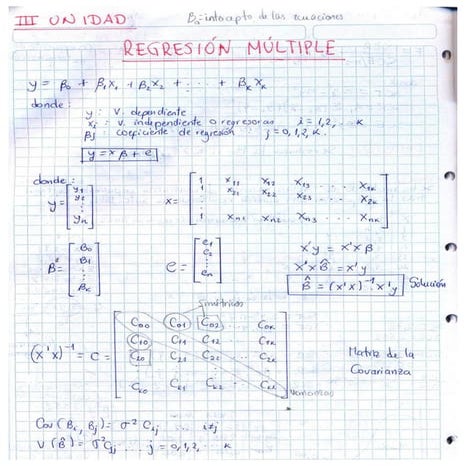 III UNIDAD
B₀ = intercepto de las ecuaciones
REGRESIÓN MÚLTIPLE
y = β₀ + β₁x₁ + β₂x₂ + ... + βₖxₖ
donde:
y : V. dependiente
xᵢ = V. independiente o regresoras i = 1,2, ... k
βj : coeficiente de regresión j = 0,1,2, k.
y = x β + e
donde:
y = [y₁ y₂ ⋮ yₙ]
x = [1 x₁₁ x₁₂ x₁₃ ... x₁ₖ
1 x₂₁ x₂₂ x₂₃ ... x₂ₖ
⋮
1 xₙ₁ xₙ₂ xₙ₃ ... xₙₖ]
β = [β₀ β₁ ⋮ βₖ]
e = [e₁ e₂ ⋮ eₙ]
x'y = x'xβ
x'x β̂ = x'y
β̂ = (x'x)⁻¹ x'y Solución
Simétricos
(x'x)⁻¹ = C = [C₀₀ C₀₁ C₀₂ ... C₀ₖ
C₁₀ C₁₁ C₁₂ ... C₁ₖ
C₂₀ C₂₁ C₂₂ ... C₂ₖ
⋮
Cₖ₀ Cₖ₁ Cₖ₂ ... Cₖₖ]
Matriz de la
Covarianza
Varianzas
Cov (Bᵢ, Bj) = σ² Cᵢj ... i≠j
V (β̂) = σ² Cjj ... j = 0,1,2, ... k